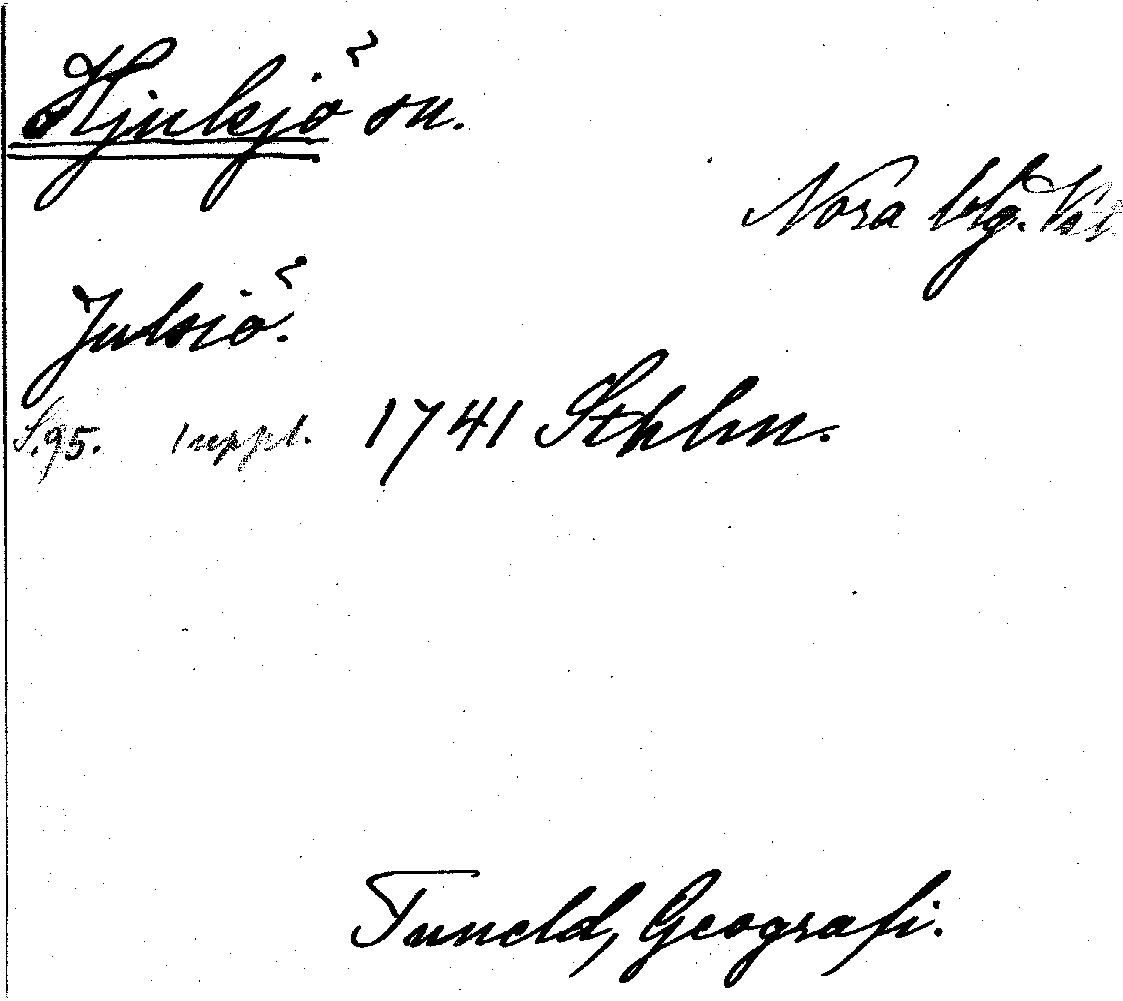 Hjulsjö sn.
Nora blg. Vstm.
Julsiö.
S. 95. suppl. 1741 Sthlm.
Tuneld, Geografi.